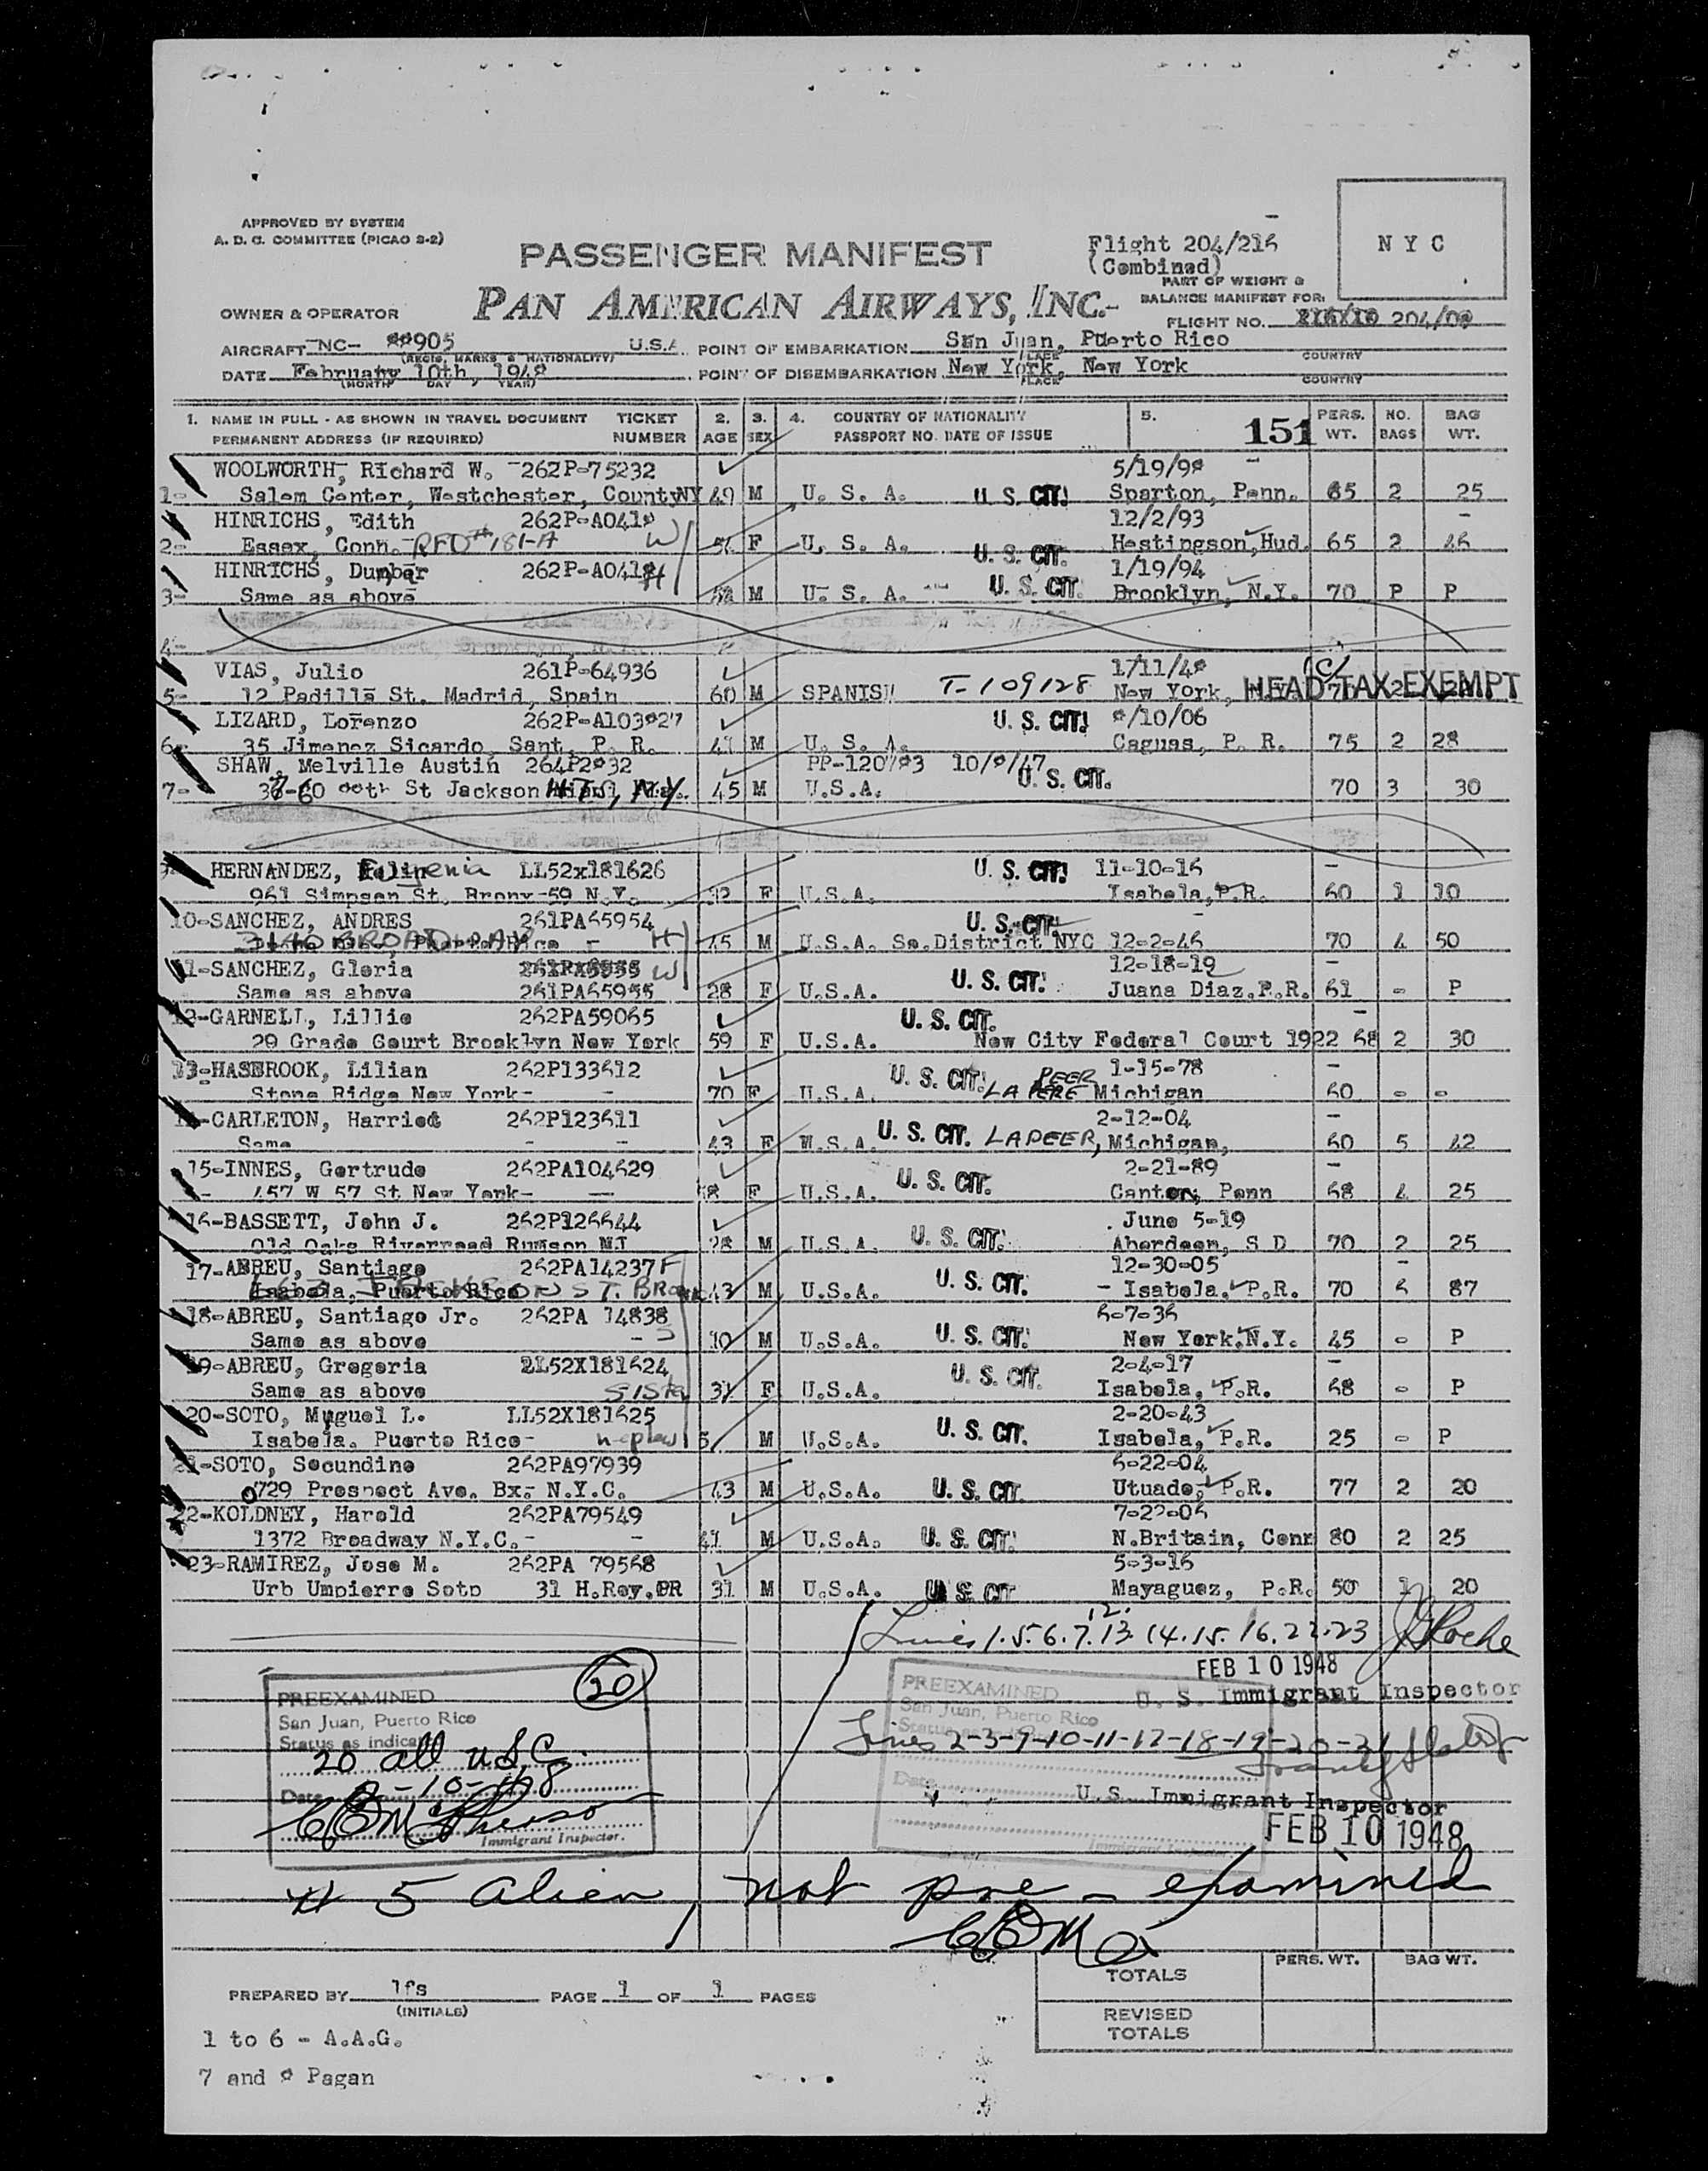 APPROVED BY SYSTEM
A. D. C. COMMITTEE (PICAO 2-2)
PASSENGER MANIFEST
Flight 204/216
(Combined)
N Y C
PART OF WEIGHT &
BALANCE MANIFEST FOR:
PAN AMERICAN AIRWAYS, INC.-
OWNER & OPERATOR
FLIGHT NO. 204/08
AIRCRAFT NC- 905 U.S.A. POINT OF EMBARKATION San Juan, Puerto Rico
(REGIS. MARKS & NATIONALITY) PLACE COUNTRY
DATE February 10th, 1948 POINT OF DISEMBARKATION New York, New York
(MONTH DAY YEAR) PLACE COUNTRY
1. NAME IN FULL - AS SHOWN IN TRAVEL DOCUMENT TICKET 2. 3. 4. COUNTRY OF NATIONALITY 5. 151 PERS. NO. BAG
PERMANENT ADDRESS (IF REQUIRED) NUMBER AGE SEX PASSPORT NO. DATE OF ISSUE WT. BAGS WT.
WOOLWORTH, Richard W. 262P-75232 5/19/98
1- Salem Center, Westchester, County NY 49 M U. S. A. U. S. CIT. Sparton, Penn. 65 2 25
HINRICHS, Edith 262P-A0418 W 12/2/93
2- Essex, Conn. RFD # 181-A F U. S. A. U. S. CIT. Hastingson, Hud. 65 2 46
HINRICHS, Dunbar 262P-A0418 H 1/19/94
3- Same as above M U. S. A. U. S. CIT. Brooklyn, N.Y. 70 P P
4-
VIAS, Julio 261P-64936 1/11/48
5- 12 Padilla St. Madrid, Spain 60 M SPANISH T-109128 New York, HEAD TAX EXEMPT
LIZARD, Lorenzo 262P-A103827 U. S. CIT. 8/10/06
6- 35 Jimenez Sicardo, Sant, P. R. 41 M U. S. A. Caguas, P. R. 75 2 28
SHAW, Melville Austin 264P2832 PP-120783 10/8/47
7- 37-60 88th St Jackson HTS, N.Y. 45 M U.S.A. U. S. CIT. 70 3 30
HERNANDEZ, Eugenia LL52x181626 U. S. CIT. 11-10-16
961 Simpson St. Bronx-59 N.Y. 32 F U.S.A. Isabela, P.R. 60 1 10
10-SANCHEZ, ANDRES 261PA65954 U. S. CIT.
3140 BROADWAY H 45 M U.S.A. So.District NYC 12-2-46 70 4 50
11-SANCHEZ, Gloria W 12-18-19
Same as above 261PA65955 28 F U.S.A. U. S. CIT. Juana Diaz,P.R. 61 - P
12-GARNELL, Lillie 262PA59065 U. S. CIT.
29 Grade Court Brooklyn New York 59 F U.S.A. New City Federal Court 1922 68 2 30
13-HASBROOK, Lilian 262P133612 U. S. CIT. PEER 1-15-78
Stone Ridge New York- 70 F U.S.A. LA PERE Michigan 60 - -
14-CARLETON, Harriet 262P123611 2-12-04
Same 43 F U.S.A. U. S. CIT. LAPEER, Michigan, 60 5 42
15-INNES, Gertrude 262PA104629 U. S. CIT. 2-21-89
457 W 57 St New York- 58 F U.S.A. Canton, Penn 68 4 25
16-BASSETT, John J. 262P126644 June 5-19
Old Oaks Riverroad Rumson NJ 28 M U.S.A. U. S. CIT. Aberdeen, S D 70 2 25
17-ABREU, Santiago 262PA14237 F 12-30-05
Isabela, Puerto Rico 43 M U.S.A. U. S. CIT. - Isabela, P.R. 70 6 87
18-ABREU, Santiago Jr. 262PA 14838 6-7-36
Same as above - S 10 M U.S.A. U. S. CIT. New York, N.Y. 45 - P
19-ABREU, Gregoria LL52X181624 2-4-17
Same as above Sister 31 F U.S.A. U. S. CIT. Isabela, P.R. 68 - P
20-SOTO, Miguel L. LL52X181625 2-20-43
Isabela, Puerto Rico- nephew 5 M U.S.A. U. S. CIT. Isabela, P.R. 25 - P
21-SOTO, Secundino 262PA97939 6-22-04
729 Prospect Ave. Bx. N.Y.C. 43 M U.S.A. U. S. CIT. Utuado, P.R. 77 2 20
22-KOLDNEY, Harold 262PA79549 7-22-06
1372 Broadway N.Y.C.- 41 M U.S.A. U. S. CIT. N.Britain, Conn 80 2 25
23-RAMIREZ, Jose M. 262PA 79568 5-3-16
Urb Umpierre Soto 31 H.Rey,PR 31 M U.S.A. U. S. CIT Mayaguez, P.R. 50 1 20
12.
Lines 1.5.6.7.13.14.15.16.22.23 Roche
FEB 10 1948
U. S. Immigrant Inspector
20
PREEXAMINED
San Juan, Puerto Rico
Status as indicated
20 all U.S.C.
Date 2-10-48
Immigrant Inspector.
PREEXAMINED
San Juan, Puerto Rico
Lines 2-3-9-10-11-17-18-19-20-21
Date
U.S. Immigrant Inspector
FEB 10 1948
Immigrant Inspector.
# 5 alien, not pre-examined
TOTALS PERS. WT. BAG WT.
REVISED
TOTALS
PREPARED BY lfs PAGE 1 OF 1 PAGES
(INITIALS)
1 to 6 - A.A.G.
7 and 8 Pagan